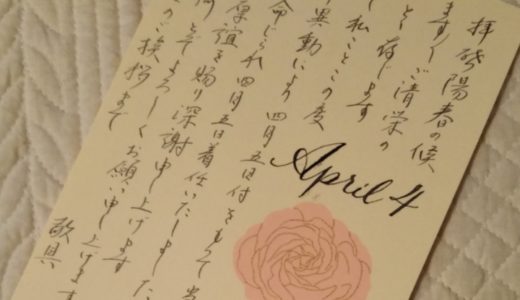 拝啓 陽春の候
ますますご清栄の
と存じます
私ことこの度
異動により 四月五日付をもって
命じられ四月五日着任いたしました
厚誼を賜り深謝申し上げます
何とぞよろしくお願い申し上げます
のご挨拶まで
敬具
April 4